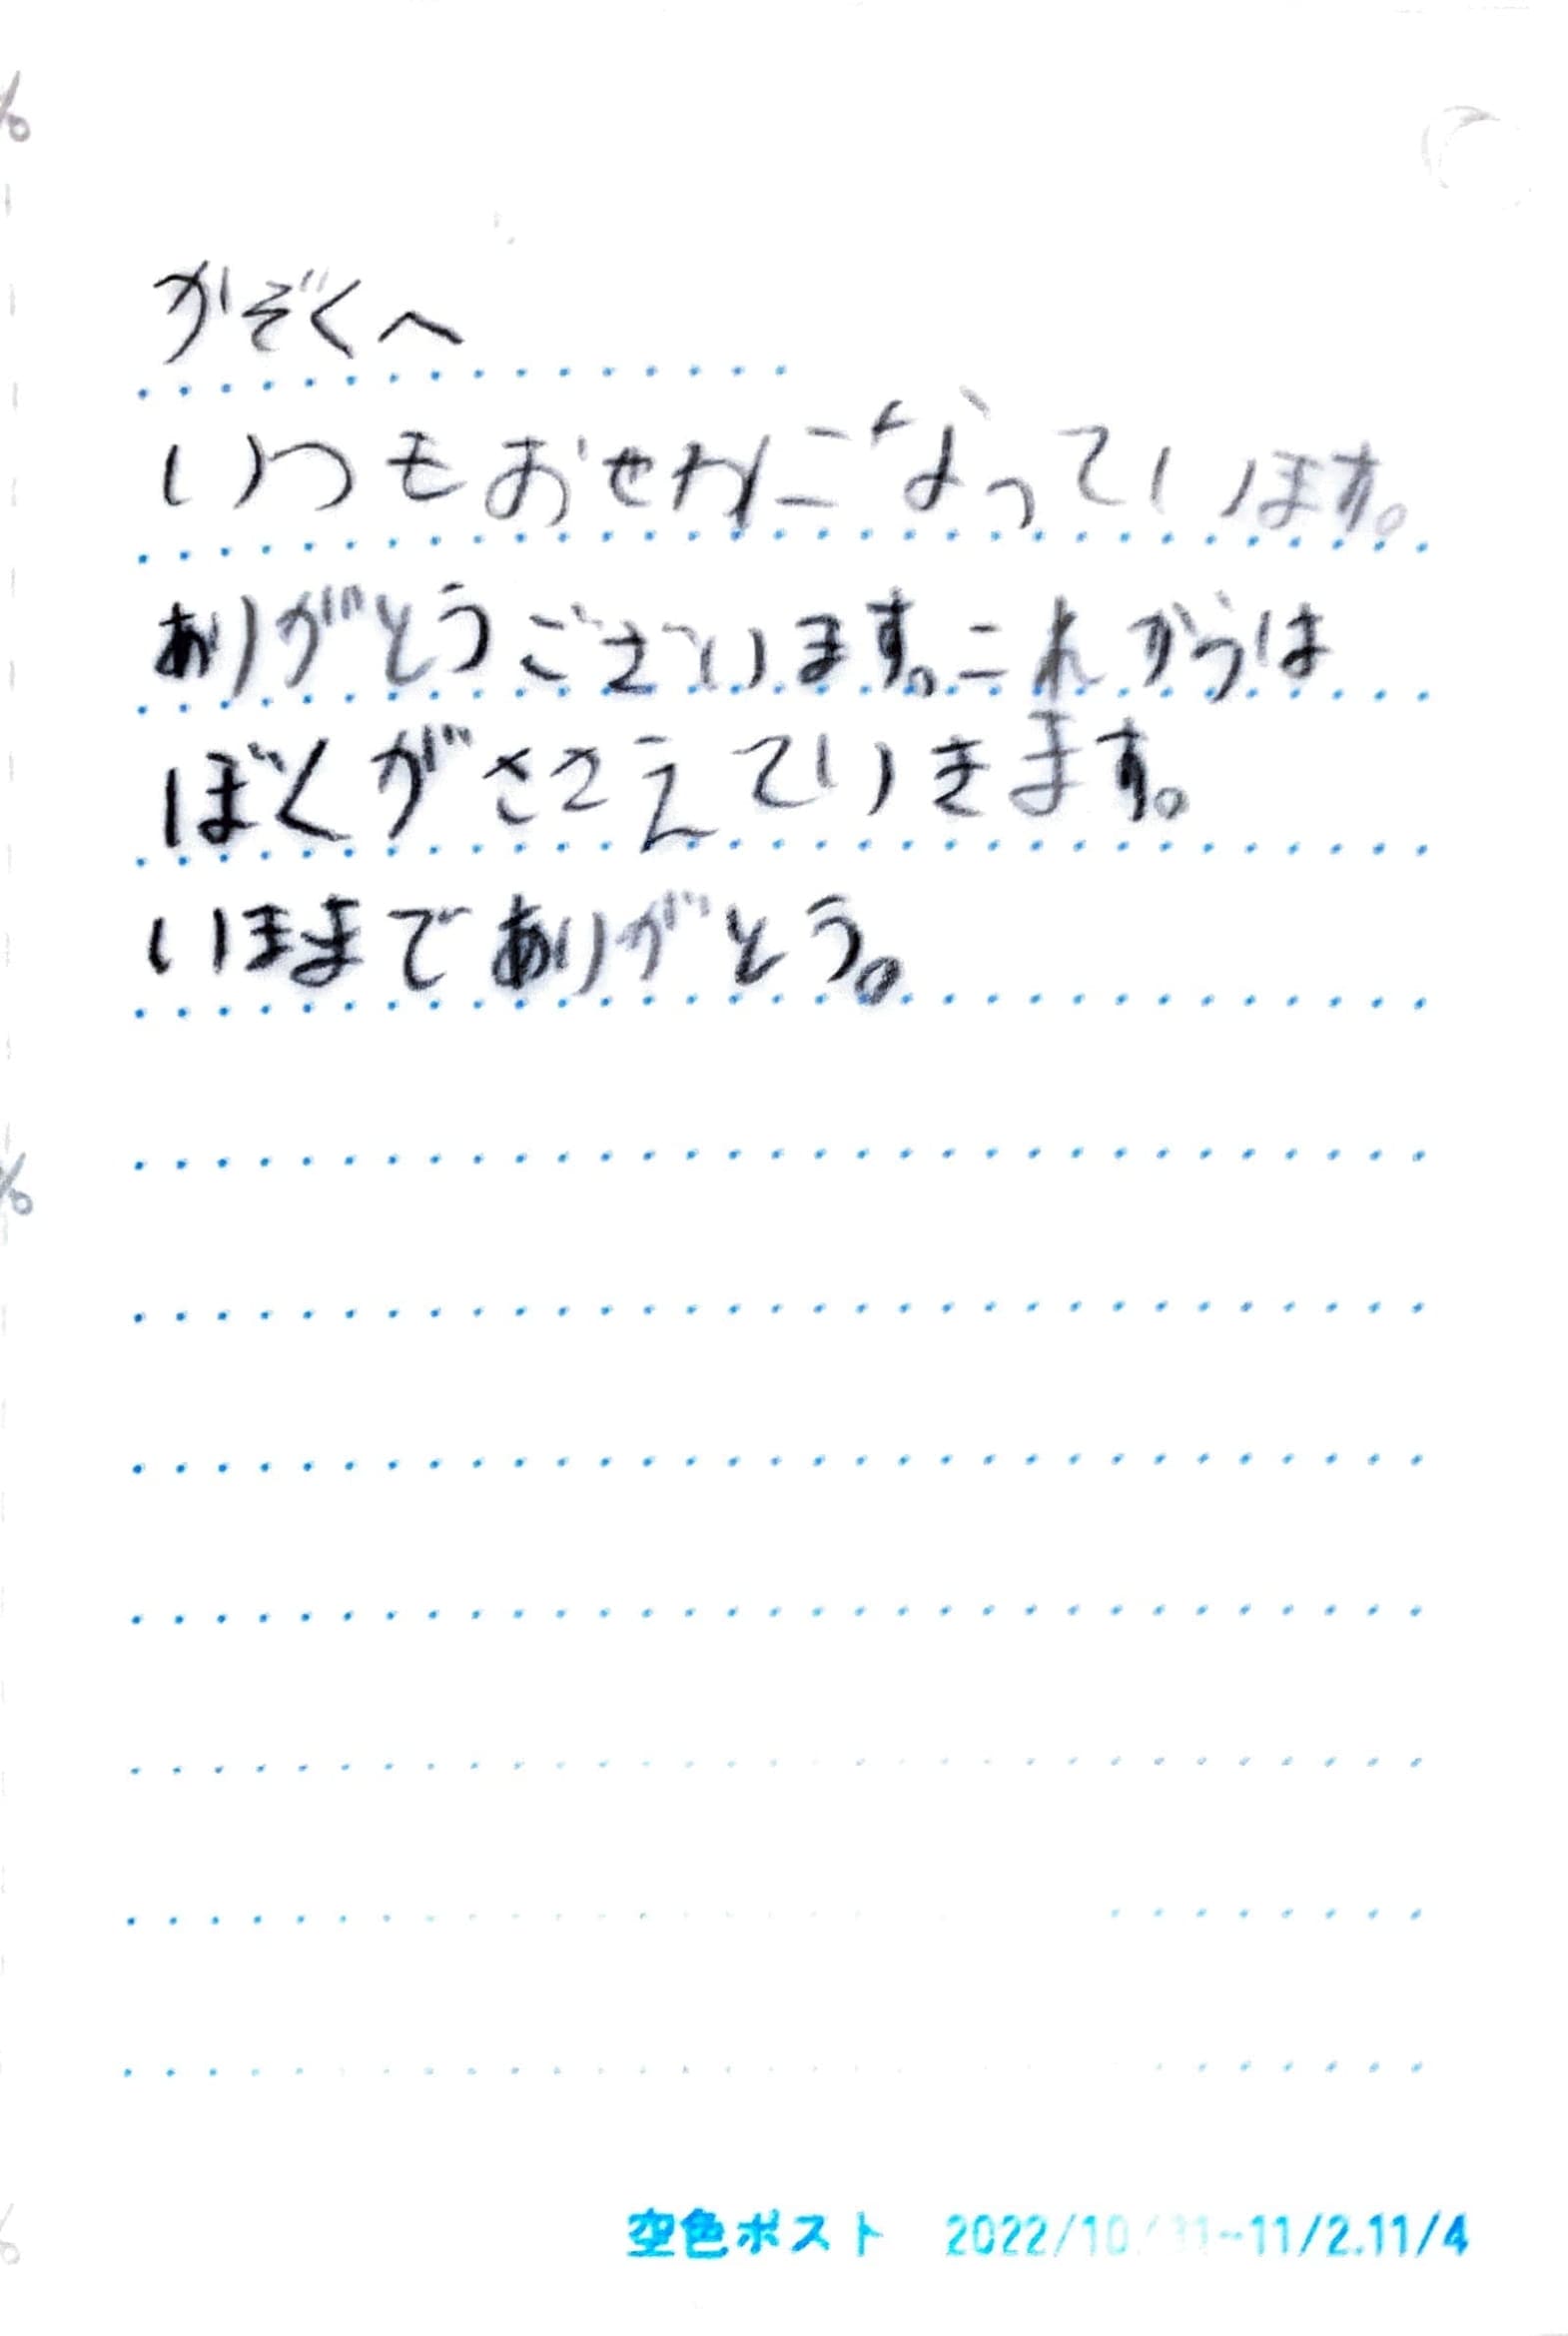 かぞくへ
いつもおせわになっています。
ありがとうございます。これからは
ぼくがささえていきます。
いままでありがとう。
空色ポスト 2022/10/31~11/2.11/4